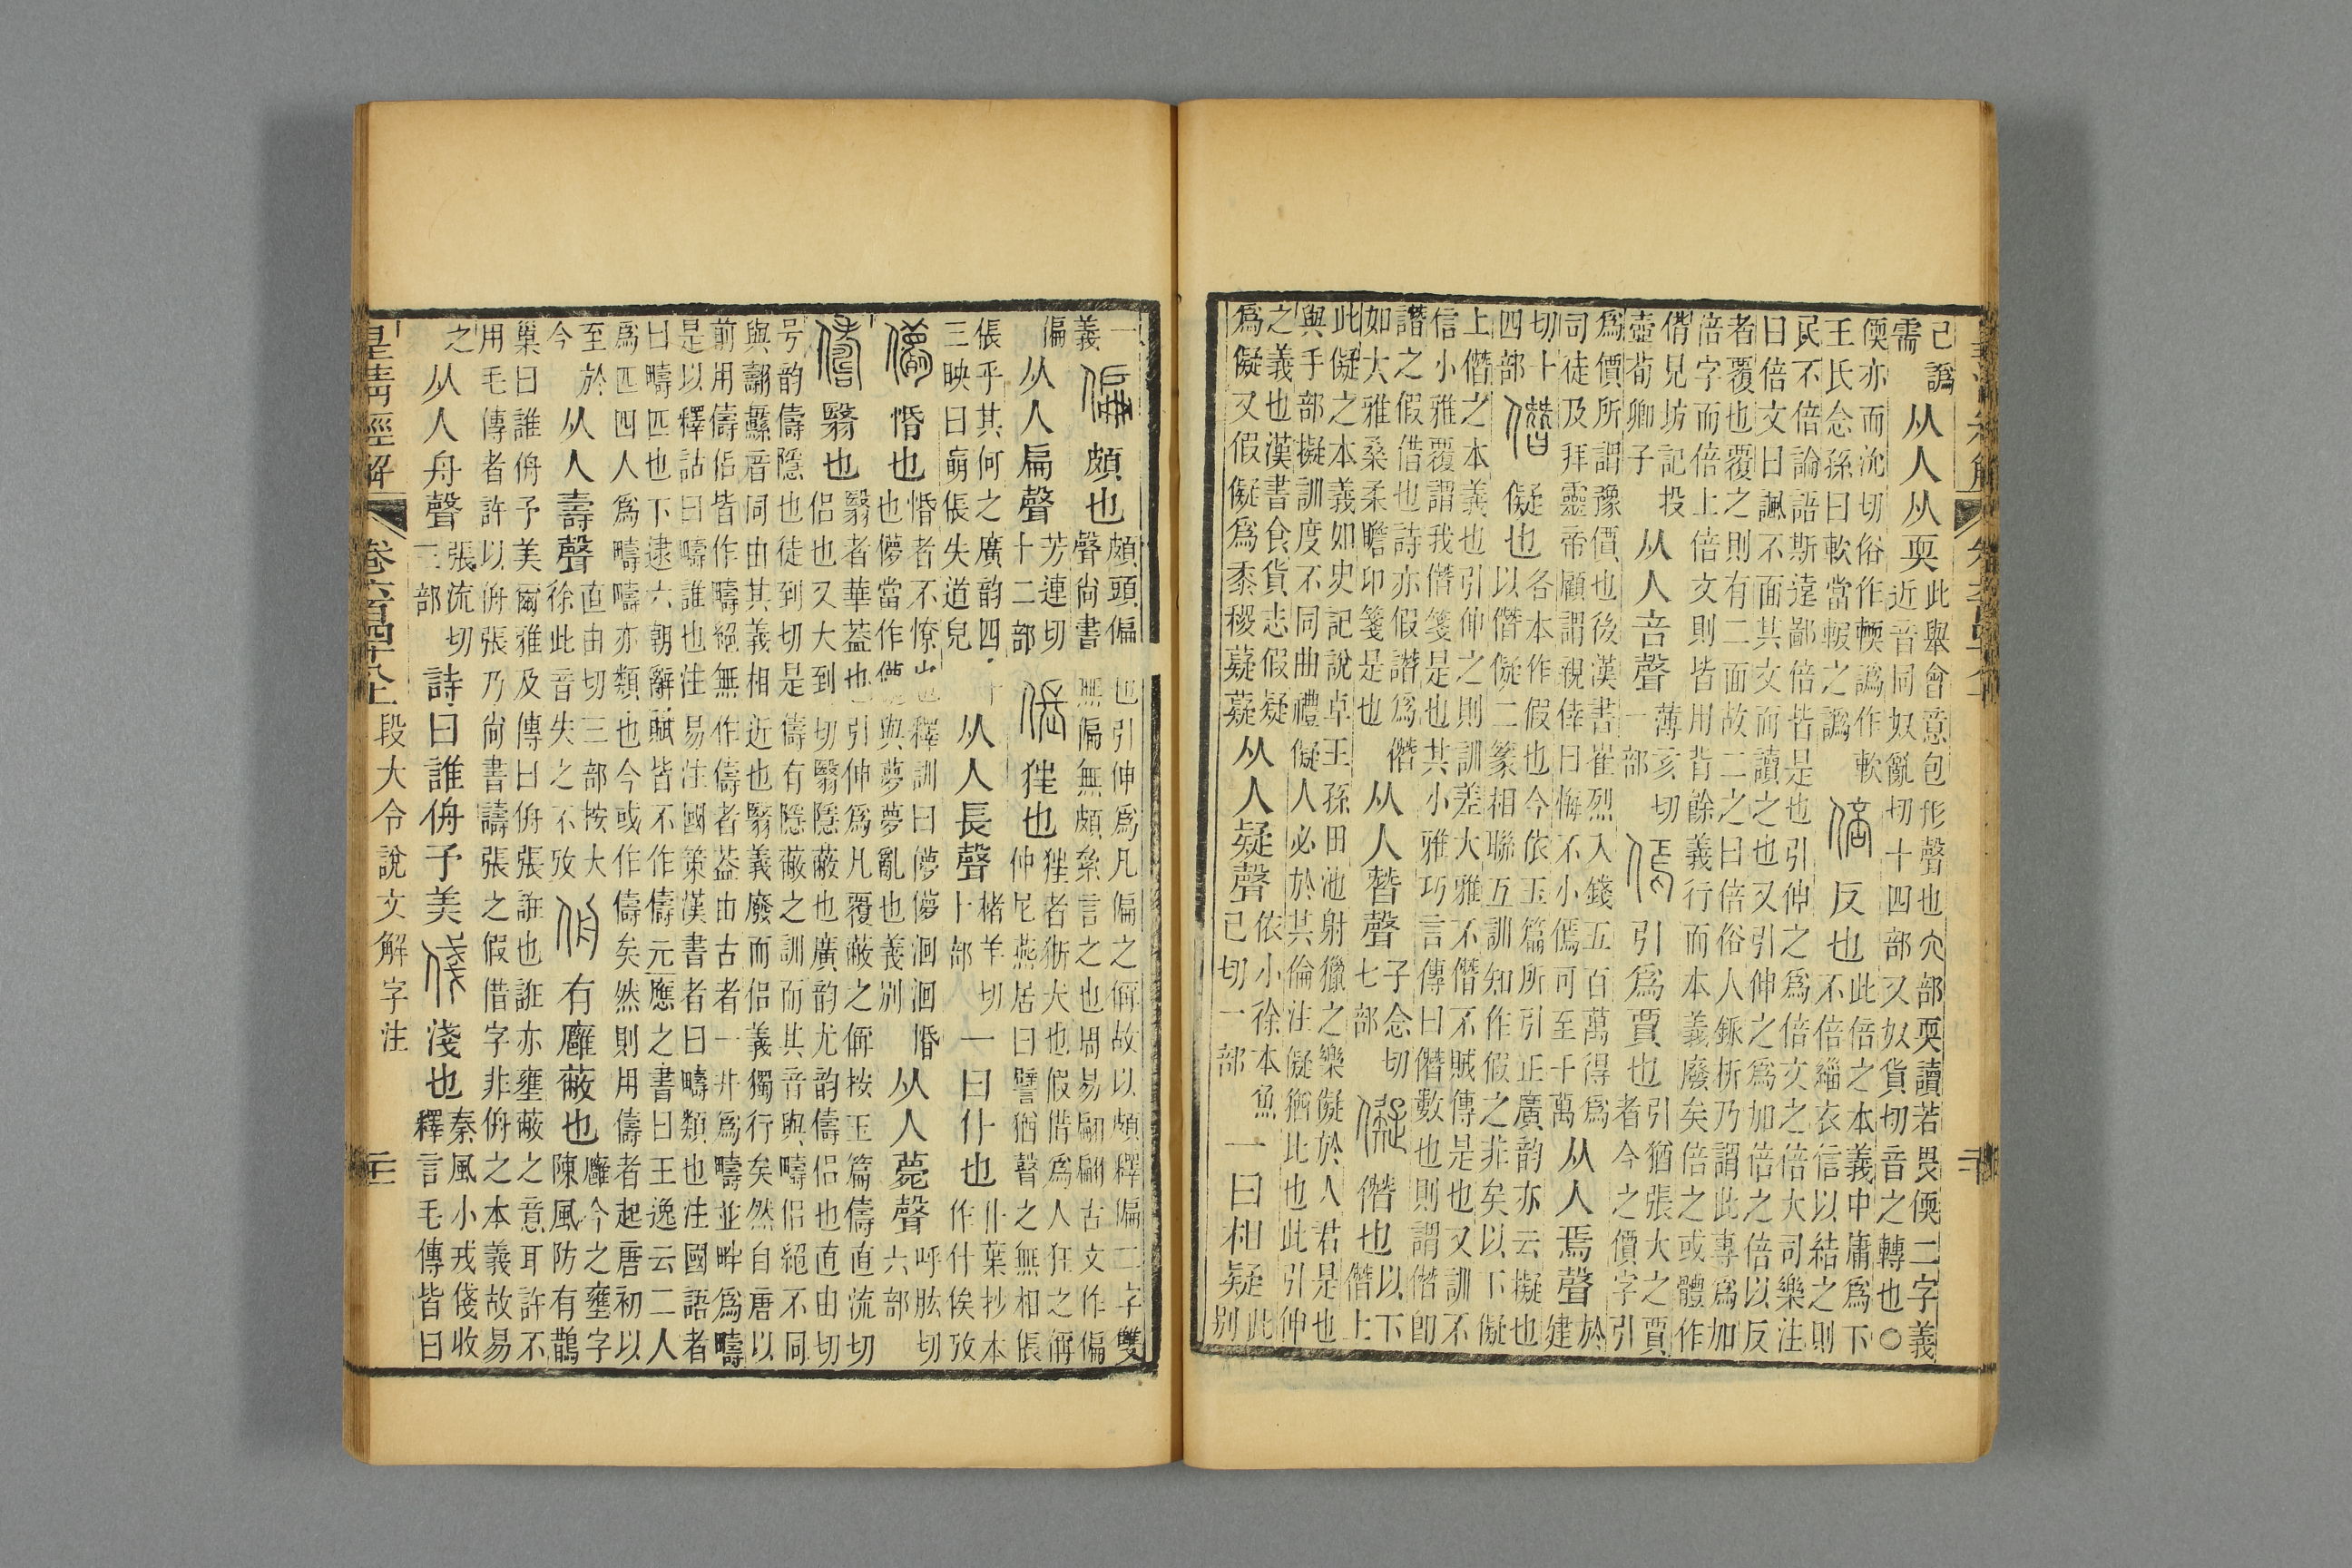 已譌需从人从耎此舉會意包形聲也穴部耎讀若畏偄二字義近音同奴亂切十四部又奴貨切音之轉也○
偄亦而沇切俗作輭譌作軟王氏念孫曰軟當報之譌倍反也此倍之本義中庸爲下不倍緇衣信以結之則
民不倍論語斯遠鄙倍皆是也引伸之爲倍文之倍大司樂注曰倍文曰諷不面其文而讀之也又引伸之爲加倍之倍以反
者覆也覆之則有二面故二之曰倍俗人鉌析乃謂此專爲加倍字而倍上倍文則皆用背餘義行而本義廢矣倍之或體作
偝見坊記投壺荀卿子从人咅聲薄亥切一部傿引爲賈也引猶張大之賈者今之價字引
爲價所謂豫價也後漢書崔烈入錢五百萬得爲司徒及拜靈帝顧謂親倖曰悔不小傿可至千萬从人焉聲於建
切十四部僭儗也各本作假也今依玉篇所引正廣韵亦云擬也以僭儗二篆相聯互訓知作假之非矣以下儗
上僭之本義也引伸之則訓差大雅不僭不賊傳是也又訓不信小雅覆謂我僭箋是也其小雅巧言傳曰僭數也則謂僭卽
譖之假借也詩亦假譖爲僭如大雅桑柔瞻卬箋是也从人朁聲子念切七部儗僭也以下僭上
此儗之本義如史記說卓王孫田池射獵之樂儗於人君是也與手部擬訓度不同曲禮儗人必於其倫注儗猶比也此引伸
之義也漢書食貨志假疑爲儗又假儗爲黍稷薿薿从人疑聲依小徐本魚已切一部一曰相疑此别
一義偏頗也頗頭偏也引伸爲凡偏之偁故以頗釋偏二字雙聲尙書無偏無頗絫言之也周易翩翩古文作偏
偏从人扁聲芳連切十二部倀狂也狂者狾犬也假借爲人狂之偁仲尼燕居曰譬猶瞽之無相倀
倀乎其何之廣韵四十三映曰倀失道皃从人長聲楮羊切十部一曰仆也仆葉抄本作什俟攷
儚惛也惛者不憭也釋訓曰儚儚洄洄惛也儚當作與夢夢亂也義別从人薨聲呼肱切六部
儔翳也翳者華葢也引伸爲凡覆蔽之偁按玉篇儔直流切侣也又大到切翳隱蔽也廣韵尤韵儔侣也直由切
号韵儔隱也徒到切是儔有隱蔽之訓而其音與疇侣絕不同與翿纛音同由其義相近也翳義廢而侣義獨行矣然自唐以
前用儔侣皆作疇絕無作儔者葢由古者一井爲疇並畔爲疇是以釋詁曰疇誰也注易注國策漢書者曰疇類也注國語者
曰疇匹也下逮六朝辭賦皆不作儔元應之書曰王逸云二人爲匹四人爲疇疇亦類也今或作儔矣然則用儔者起唐初以
至於今从人壽聲直由切三部按大徐此音失之不攷侜有廱蔽也廱今之壅字陳風防有鵲
巢曰誰侜予美爾雅及傳曰侜張誑也誑亦壅蔽之意耳許不用毛傳者許以侜張乃尙書譸張之假借字非侜之本義故易
之从人舟聲張流切三部詩曰誰侜予美俴淺也秦風小戎俴收釋言毛傳皆曰
皇淸經解 卷六百四十八上 段大令說文解字注